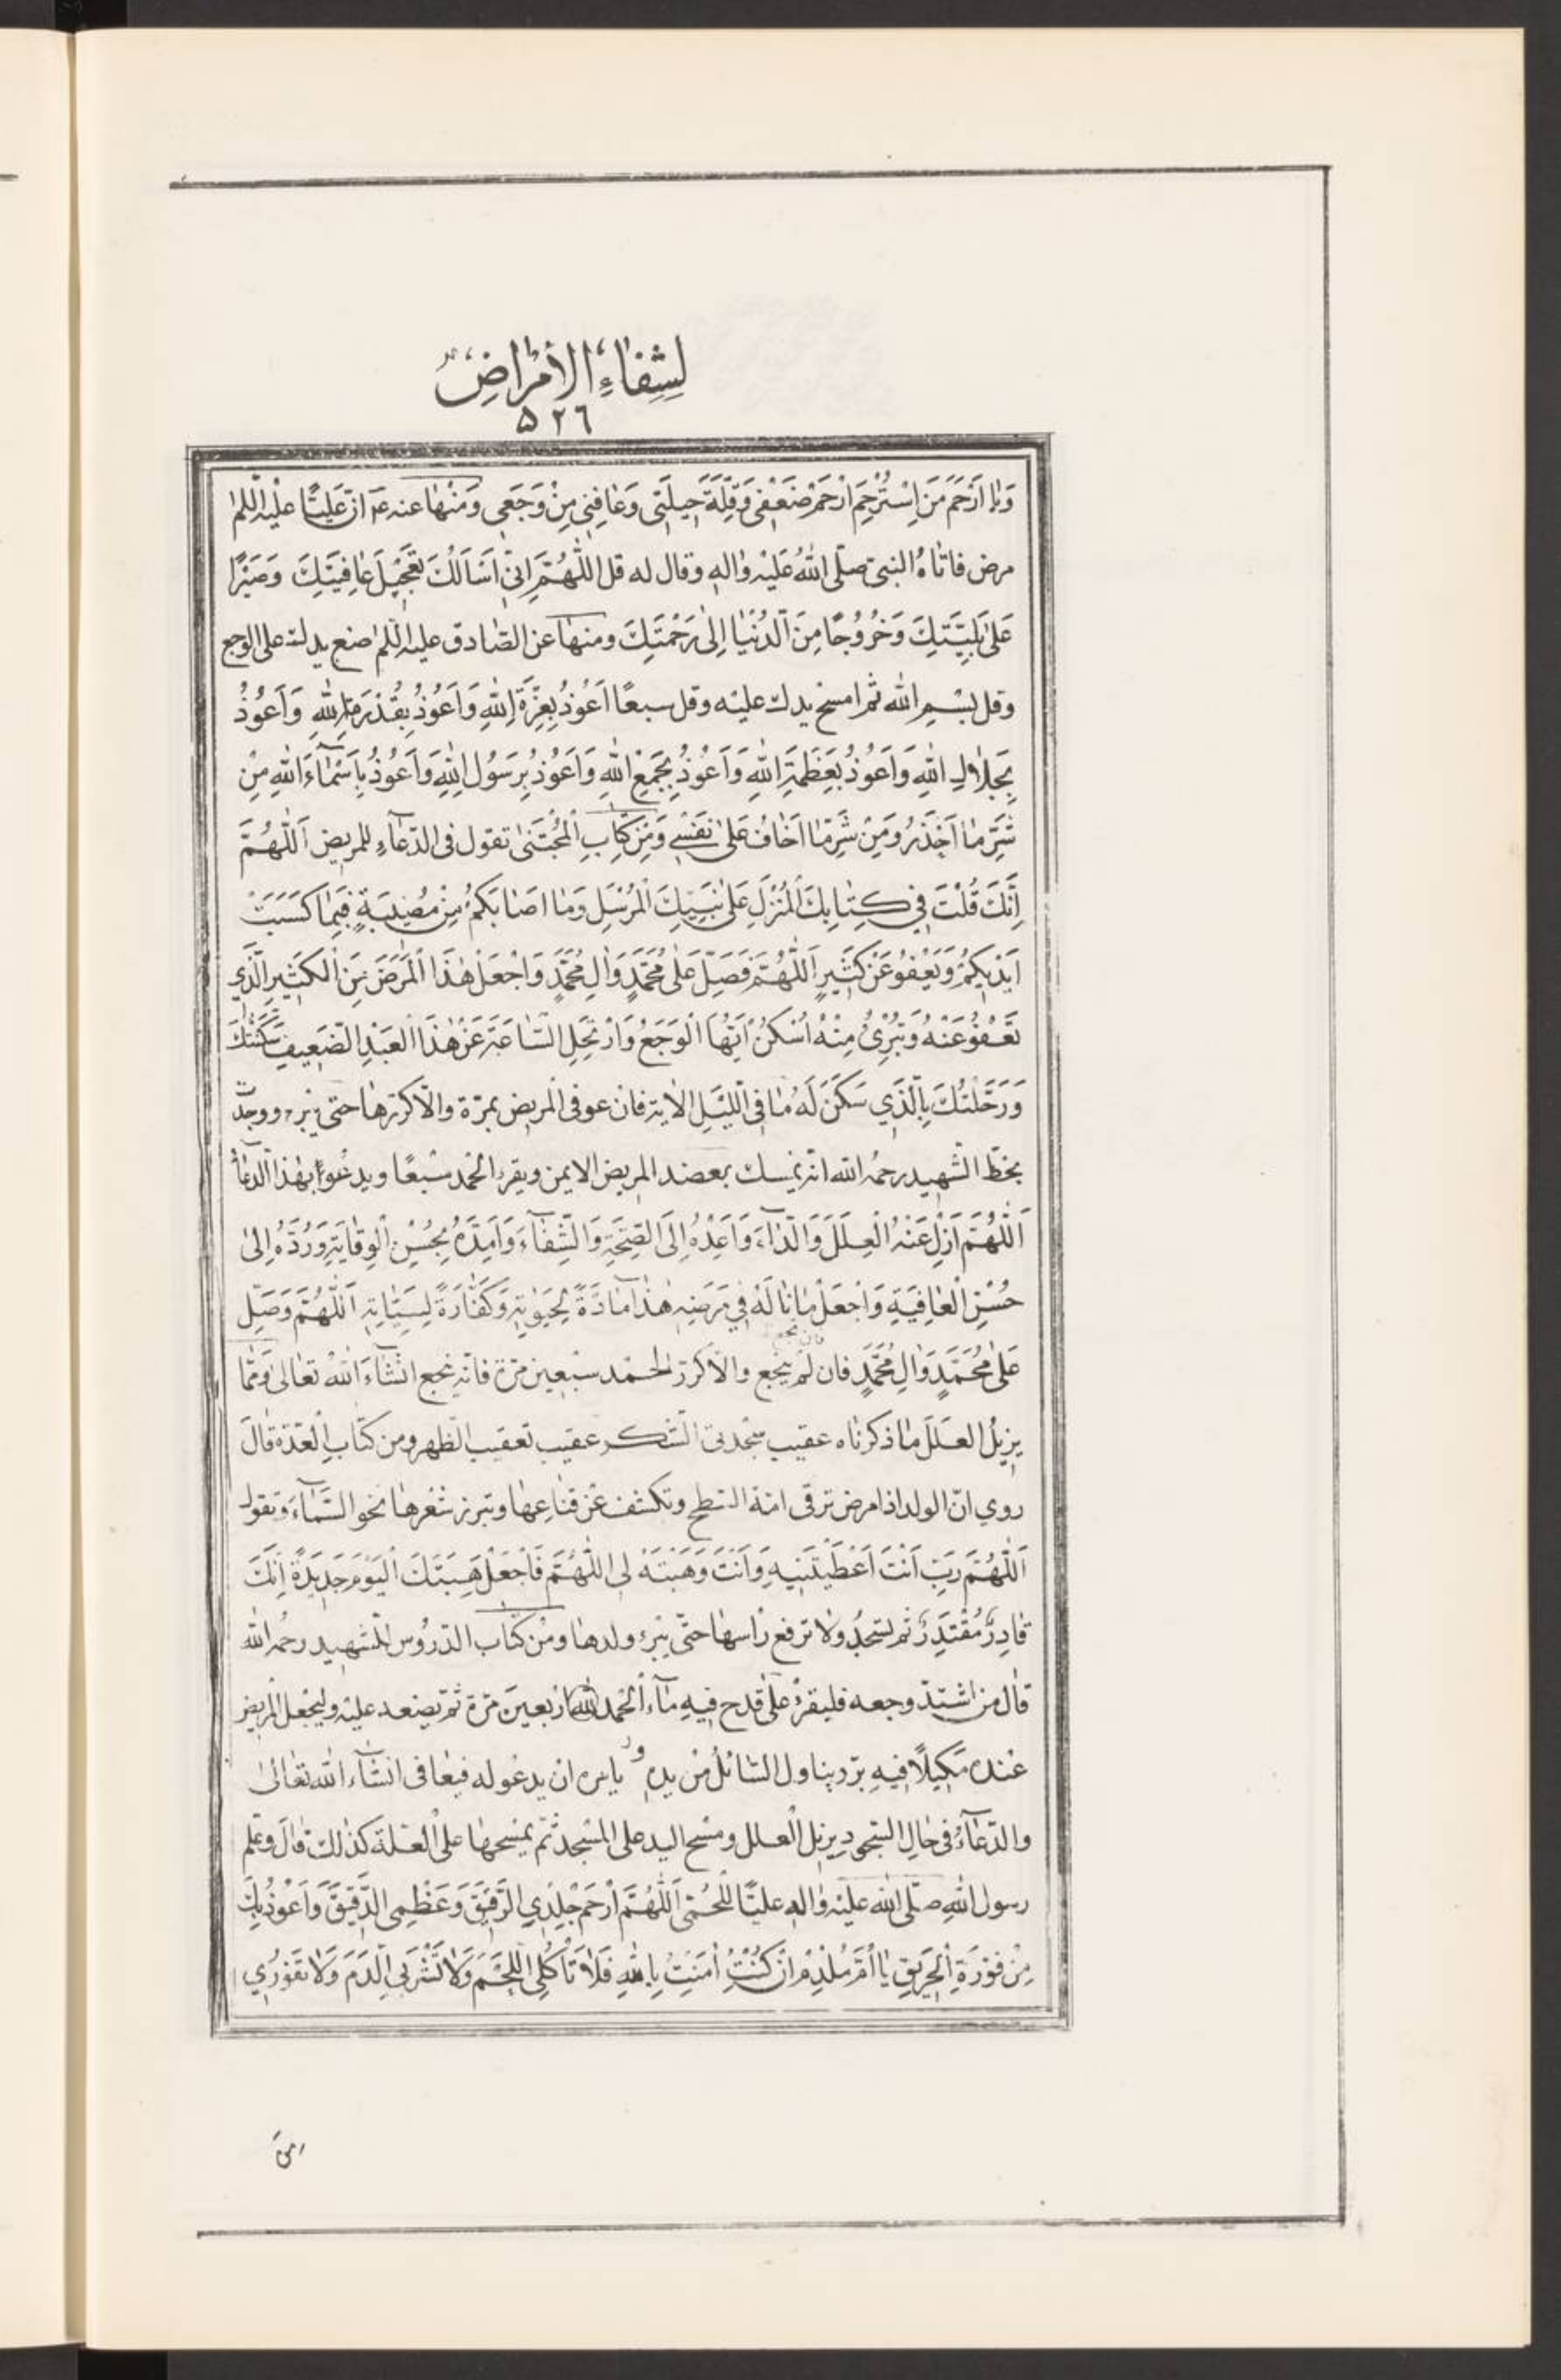 لِشِفٰاءِ الأمْرٰاضِ
٥٢٦
وَيٰا اَرْحَمَ مَنَ اِسْتُرْحِمَ اَرْحَمْ ضَعْفى وَقِلَّةَ حيلَتى وَعٰافِنى مِنْ وَجَعى وَمنْهٰا عنه عۤ انّ عَلِيًّا علْيه السّلٰم
مرض فاتٰاهُ النبى صلّى اللّٰهُ عَلَيْه واٰلهِ وقال له قل اللّٰهُمَّ اِنّىٰ اَسَالَكَ تَعْجٖيلَ عٰافِيَتِكَ وَصَبْرًا
عَلىٰ بَلِيَّتِكَ وَخُرُوجًا مِنَ الدُنْيٰا اِلىٰ رَحْمَتِكَ ومنهٰا عن الصّٰادق عليه السّلٰم ضع يدك على الوجع
وقل بِسْمِ اللّٰه ثم امسح يدك عليْه وقل سبعًا اَعُوذُ بِعِزَّةِ اللّٰهِ وَاَعُوذُ بِقُدْرَةِ اللّٰهِ وَاَعُوذُ
بِجَلٰالِ اللّٰهِ وَاَعُوذُ بِعَظَمَةِ اللّٰهِ وَاَعُوذُ بِجَمْعِ اللّٰهِ وَاَعُوذُ بِرَسُولِ اللّٰهِ وَاَعُوذُ بِاَسْمٰآءِ اللّٰهِ مِنْ
شَرِّ مٰا اَحْذَرُ وَمِنْ شَرِّ مٰا اَخٰافُ عَلىٰ نَفْسى وَمِنْ كِتٰابِ الْمُجْتَنىٰ تقول فى الدّعٰآءِ للمريض اَللّٰهُمَّ
اِنَّكَ قُلْتَ فى كِتٰابِكَ الْمُنْزَلِ عَلىٰ نَبِيِّكَ الْمُرْسَلِ وَمٰا اَصٰابَكُمْ مِنْ مُصٖيبَةٍ فَبِمٰا كَسَبَتْ
اَيْدٖيكُمْ وَيَعْفُو عَنْ كَثٖيرٍ اَللّٰهُمَّ فَصَلِّ عَلىٰ مُحَمَّدٍ وَاٰلِ مُحَمَّدٍ وَاجْعَلْ هٰذَا الْمَرَضَ مِنَ الْكَثٖيرِ الَّذٖي
تَعْفُو عَنْهُ وَتُبْرِئُ مِنْهُ اُسْكُنْ اَيُّهَا الْوَجَعُ وَارْتَحِلِ السّٰاعَةَ عَنْ هٰذَا الْعَبْدِ الضَّعٖيفِ سَكَّنْتُكَ
وَرَحَّلْتُكَ بِالَّذٖي سَكَنَ لَهُ مٰا فِى اللَّيْلِ الاية فان عوفى المريض بمرّة والّا كرّرهٰا حتىٰ يبرء ووجدّت
بخطّ الشّهيد رحمُه اللّٰه انّه يمسك بعضد المريض الايمن ويقرء الْحمد سَبْعًا ويدعُو بهٰذَا الدّعٰآءِ
اَللّٰهُمَّ اَزِلْ عَنْهُ الْعِلَلَ وَالدّٰآءَ وَاَعِدْهُ اِلَى الصِّحَّةِ وَالشِّفٰآءِ وَاَمِدَّهُ بِحُسْنِ الْوِقٰايَةِ وَرُدَّهُ اِلىٰ
حُسْنِ الْعٰافِيَةِ وَاجْعَلْ مٰا نٰالَهُ فٖي مَرَضِهِ هٰذٰا مٰادَّةً لِحَيٰوتِهِ وَكَفّٰارَةً لِسَيِّئٰاتِهِ اَللّٰهُمَّ وَصَلِّ
عَلىٰ مُحَمَّدٍ وَاٰلِ مُحَمَّدٍ فان لم ينجع والّا كرّر الحمْد سبْعين مرّة فانّه ينجع انشٰآءَ اللّٰهُ تعٰالىٰ وَممّٰا
يزيلُ العلَلَ مٰا ذكرنٰاه عقيب سجْدتى الشكر عقيب تعقيب الظهر ومن كتٰابِ الْعدّة قالَ
روي انّ الولد اذا مرض ترقى امّه السّطح وتكشف عنْ قنٰاعِهٰا وتبرز شعْرهٰا نحو السّمٰآءَ وتقول
اَللّٰهُمَّ رَبِّ اَنْتَ اَعْطَيْتَنيهِ وَاَنْتَ وَهَبْتَهُ لى اللّٰهُمَّ فَاجْعَلْ هِبَتَكَ الْيَوْمَ جَدٖيدَةً اِنَّكَ
قٰادِرٌ مُقْتَدِرٌ ثم تسْجدُ ولا ترفع رأسهٰا حتّى يبرء ولدهٰا ومن كتٰاب الدّرُوس للشّهيد رحمُه اللّٰه
قٰال من اشتدّ وجعه فليقرءْ علىٰ قدح فيهِ مٰآء الْحمد للّٰه اربَعينَ مرّة ثمّ يضعه عليْه وليجْعل المريض
عنْده مكيلًا فيهِ برّ ويناول السّٰائلُ منْ يده ويامره انْ يدعُو له فيعٰافى انشٰآء اللّٰه تعٰالىٰ
والدّعٰآءُ فى حٰالِ السّجود يزيل الْعلل ومسْح اليد على المسْجد ثمّ يمسحهٰا على الْعلّة كذٰلك قٰالَ وعلّم
رسول اللّٰهِ صلّى اللّٰه عليْه واٰله عليًّا للْحُمّى اَللّٰهُمَّ ارْحَمْ جِلْدِي الرَّقٖيقَ وَعَظْمِى الدَّقٖيقَ وَاَعُوذُ بِكَ
مِنْ فَوْرَةِ الْحَرٖيقِ يٰا اُمَّ مُلْدَمٍ اِنْ كُنْتِ اٰمَنْتِ بِاللّٰهِ فَلٰا تَأْكُلِى اللَّحْمَ وَلٰا تَشْرَبِى الدَّمَ وَلٰا تَفُورٖي
من